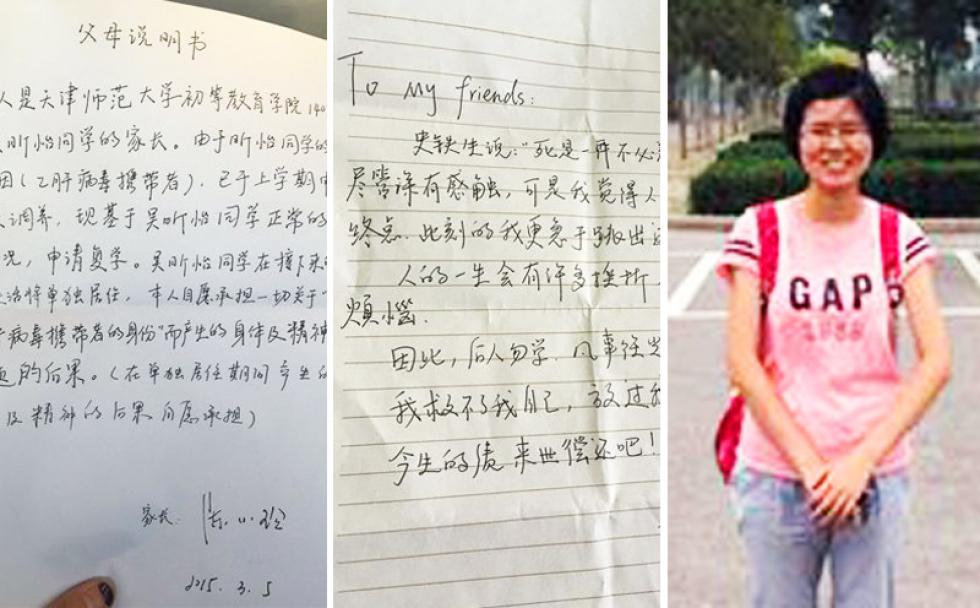 父母说明书
人是天津师范大学初等教育学院
昕怡同学的家长。由于昕怡同学的
因(乙肝病毒携带者),已于上学期
调养,现基于吴昕怡同学正常的
况,申请复学。吴昕怡同学在接下来
活将单独居住,本人自愿承担一切关于"
病毒携带者的身份"而产生的身体及精神
的后果。(在单独居住期间产生的
及精神的后果自愿承担)
家长:
2015.3.5
To my friends:
史铁生说:"死是一件不必
尽管深有感触,可是我觉得人
终点.此刻的我更急于
人的一生会有许多挫折
烦恼.
因此,后人勿学.凡事往
我救不了我自己,放过我
今生的债来世偿还吧!
GAP